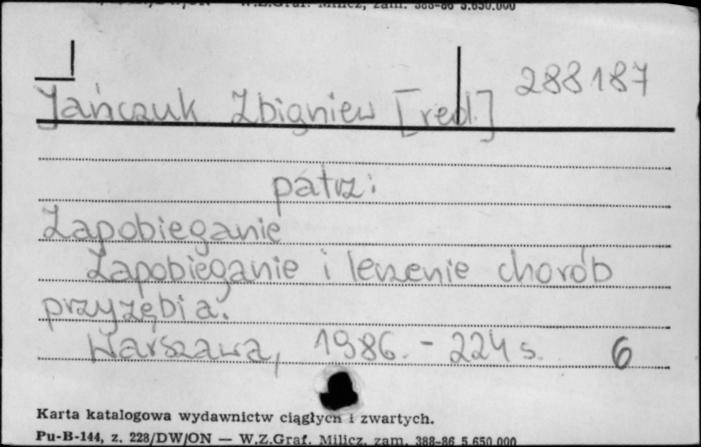 288187
Jańczuk Zbigniew [red.]
patrz:
Zapobieganie
Zapobieganie i leczenie chorób
przyzębia.
Warszawa, 1986. - 224 s. 6
Karta katalogowa wydawnictw ciągłych i zwartych.
Pu-B-144, z. 228/DW/ON — W.Z.Graf. Milicz, zam. 388-86 5.650.000